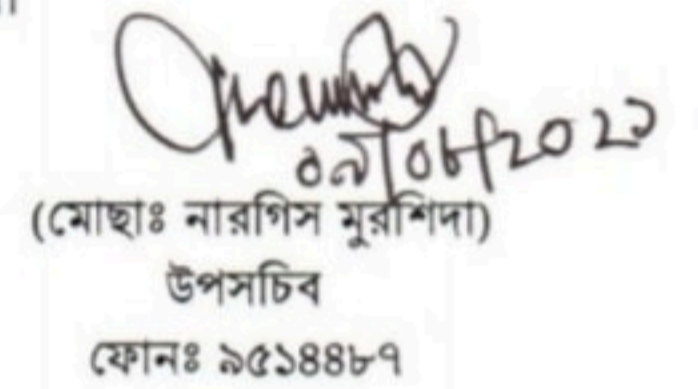 ০৯/০৮/২০২১
(মোছাঃ নারগিস মুরশিদা)
উপসচিব
ফোনঃ ৯৫১৪৪৮৭